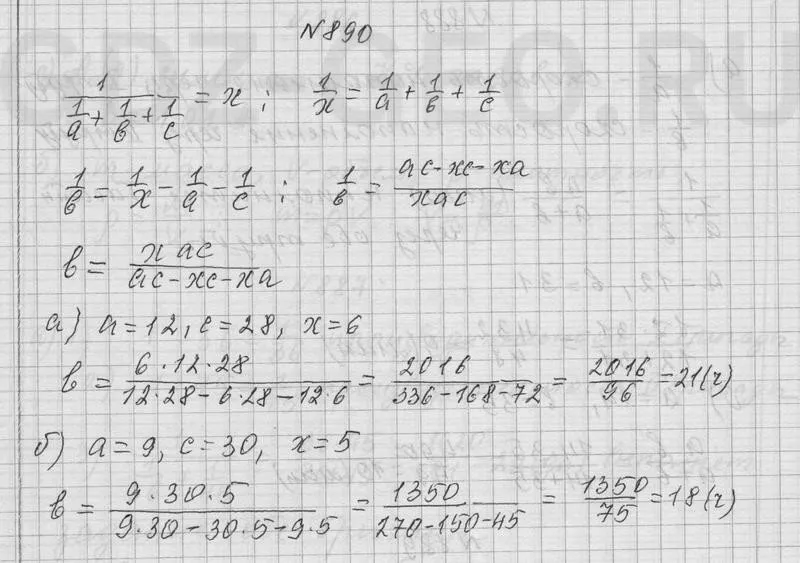 N890
1/(1/a + 1/в + 1/c) = x ; 1/x = 1/a + 1/в + 1/c
1/в = 1/x - 1/a - 1/c ; 1/в = (ac - xc - xa)/(xac)
в = (xac)/(ac - xc - xa)
а) a = 12, c = 28, x = 6
в = (6·12·28)/(12·28 - 6·28 - 12·6) = 2016/(336 - 168 - 72) = 2016/96 = 21(ч)
б) a = 9, c = 30, x = 5
в = (9·30·5)/(9·30 - 30·5 - 9·5) = 1350/(270 - 150 - 45) = 1350/75 = 18(ч)